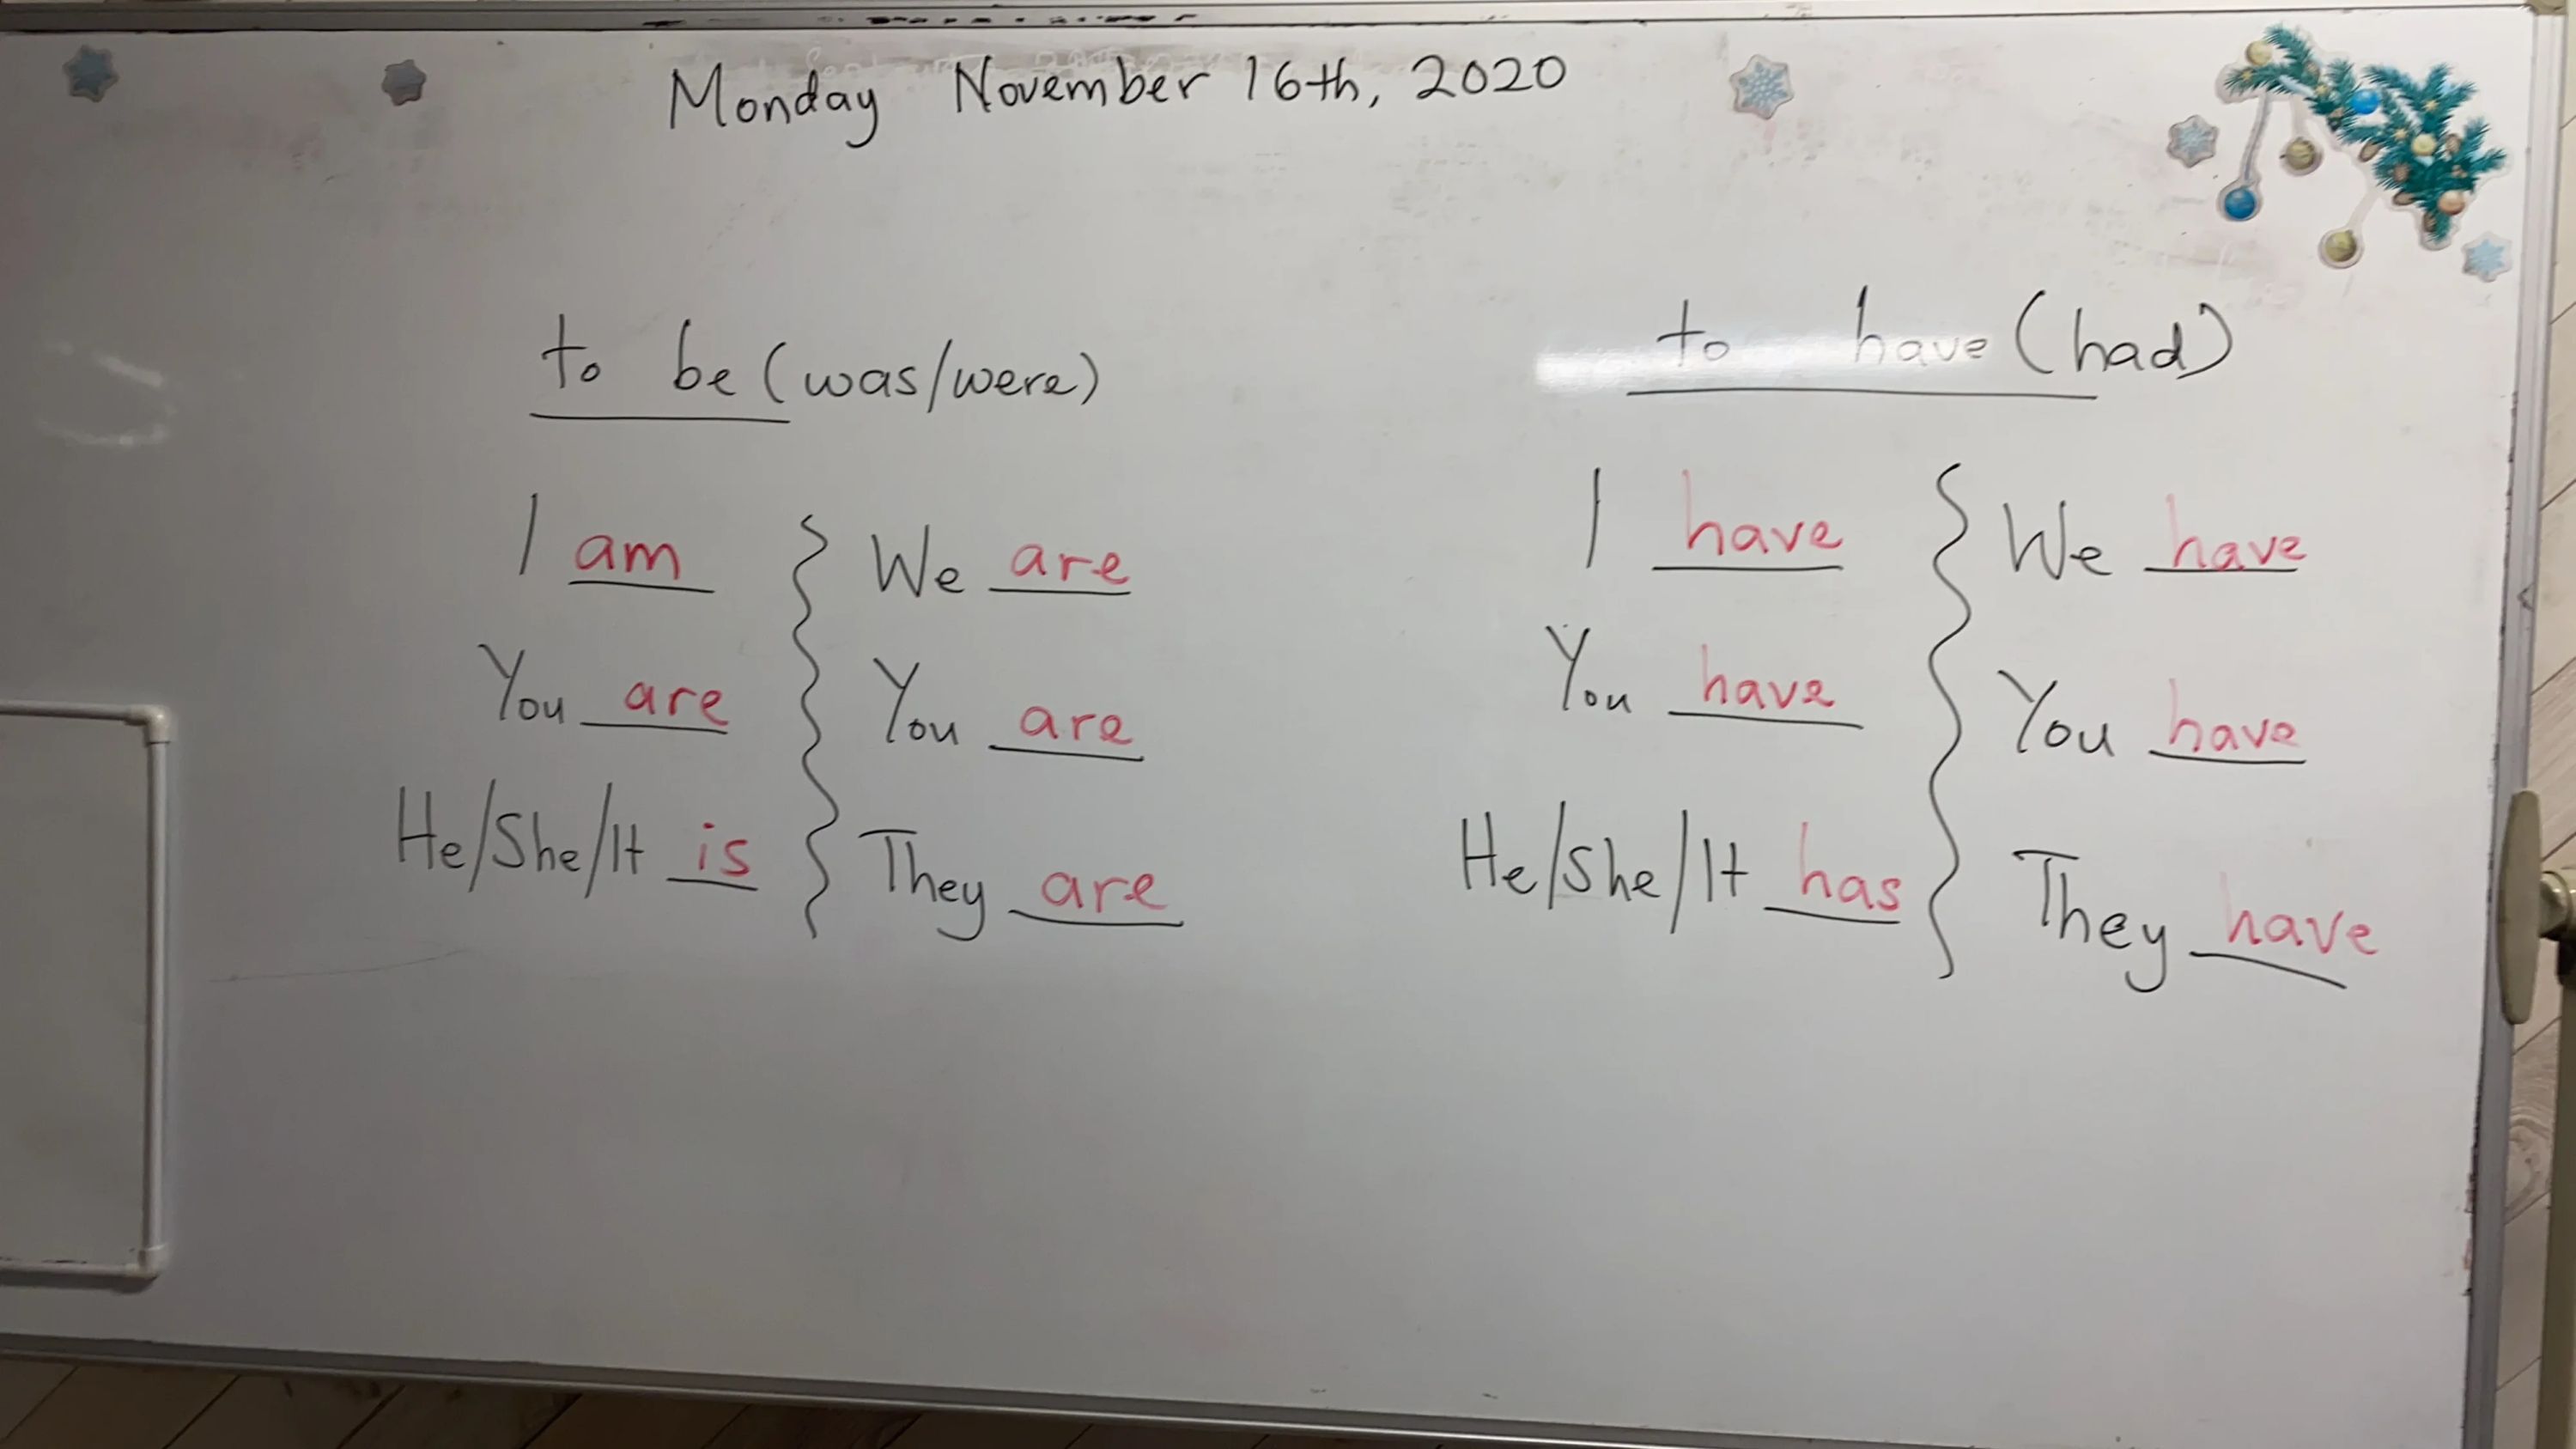 Monday November 16th, 2020
to be (was/were)
I am
You are
He/She/It is
We are
You are
They are
to have (had)
I have
You have
He/She/It has
We have
You have
They have